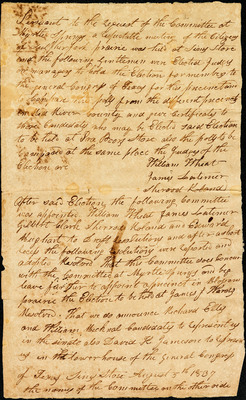 Pursuant to the request of the Committee at
Myrtle Spring a respectable meeting of the Citizens
of prairie was held at Sims Store
and the following Gentlemen were Elected Judges
or managers to hold the Election for members to
the general Congress of Texas for this precinct and
to compare the polls from the different precincts
on Red River County and give Certificates to
those Candidates who may be Elected said Election
to be held at Ira Store also the polls to be
Compared at the same place the Judges of the
Election are William Wheat
James Latimer
Sherod
After said Election, the following Committee
was appointed William Wheat James Latimer
Gilbert Clark Sherod and Edward
to draft resolutions and after a short
the following resolutions were reported and
adopted Resolved That this Committee does Concur
with the Committee at Myrtle Spring and beg
leave further to appoint a precinct in
prairie the Election to be held at James J
Resolved That we do announce Richard Ellis
and William Candidates to represent us
in the senate also David R Jameson to represent
us in the lower house of the General Congress
of Texas Sims Store August 5th 1837
the names of the Committee on the other side